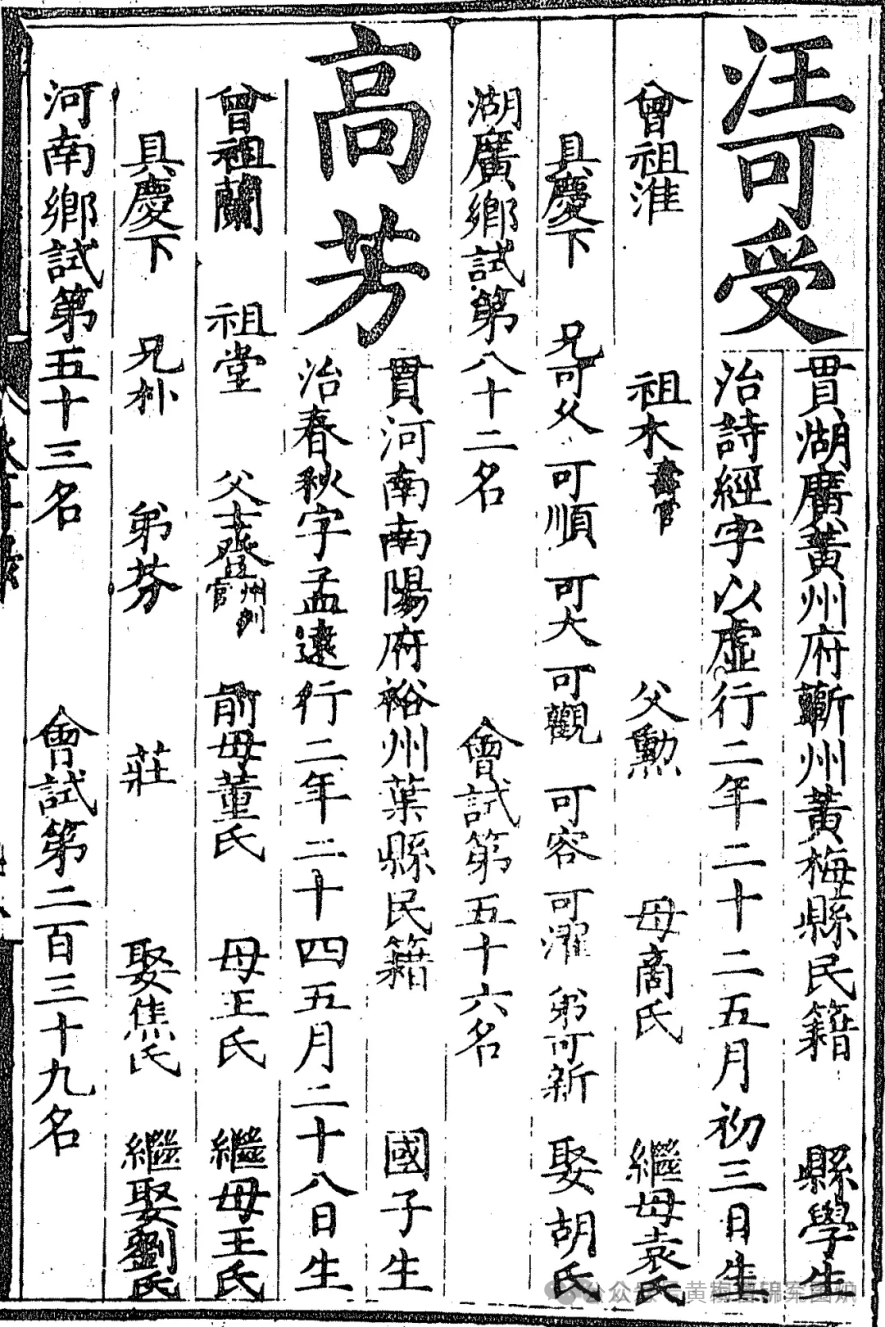 汪可受
貫湖廣黃州府蘄州黃梅縣民籍 縣學生
治詩經字以虛行二年二十二五月初三日生
曾祖淮 祖木壽官 父勲 母商氏 繼母袁氏
具慶下 兄可父 可順 可大 可觀 可容 可濯 弟可新 娶胡氏
湖廣鄉試第八十二名 會試第五十六名
高芳
貫河南南陽府裕州葉縣民籍 國子生
治春秋字孟遠行二年二十四五月二十八日生
曾祖蘭 祖堂 父士 州判官 前母董氏 母王氏 繼母王氏
具慶下 兄朴 弟芬 莊 娶焦氏 繼娶劉氏
河南鄉試第五十三名 會試第二百三十九名
公众号